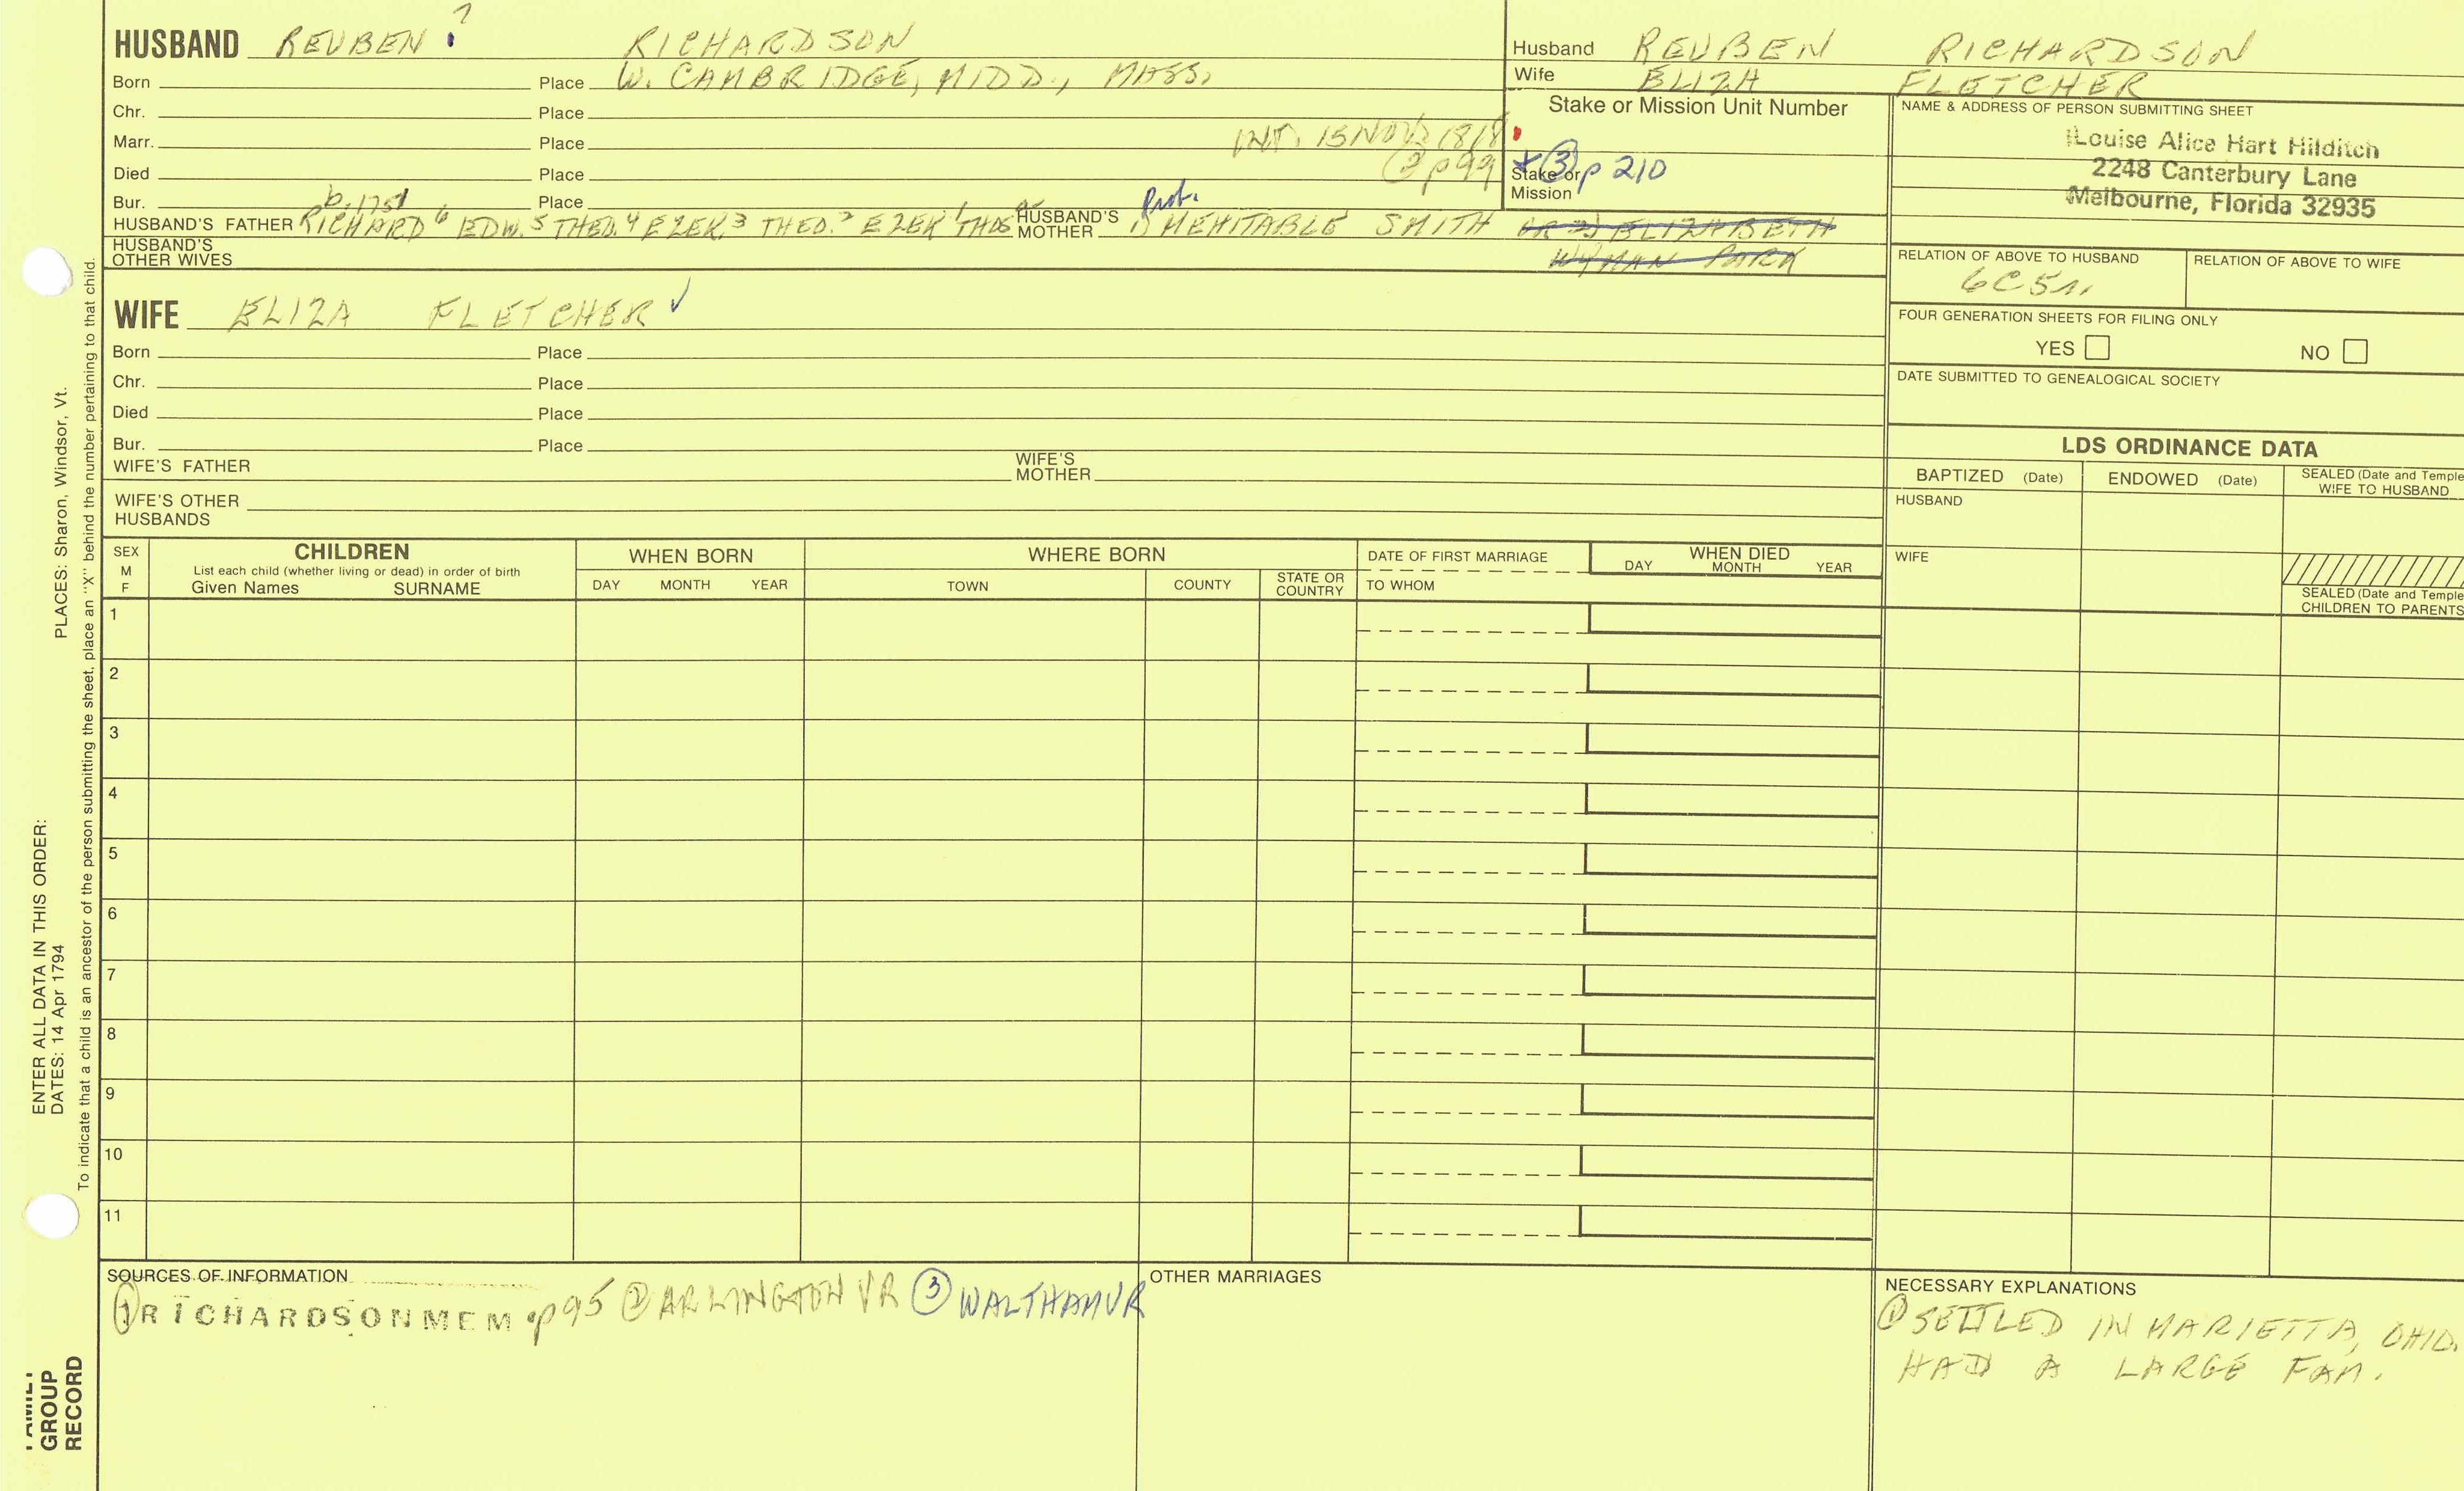 HUSBAND REUBEN ? RICHARDSON
Born Place W. CAMBRIDGE, MIDD., MASS.
Chr. Place
Marr. Place INT. 15 NOV. 1818
Died Place ② p 99 * ③ p 210
Bur. b. 1751 Place
HUSBAND'S FATHER RICHARD 6 EDW. 5 THEO. 4 EZEK. 3 THEO. 2 EZEK 1 THOS HUSBAND'S MOTHER Prob. 1) MEHITABLE SMITH OR 2) ELIZABETH
WYMAN PARK
HUSBAND'S
OTHER WIVES
WIFE ELIZA FLETCHER ✓
Born Place
Chr. Place
Died Place
Bur. Place
WIFE'S FATHER WIFE'S MOTHER
WIFE'S OTHER
HUSBANDS
Husband REUBEN RICHARDSON
Wife ELIZA FLETCHER
Stake or Mission Unit Number
Stake or
Mission
NAME & ADDRESS OF PERSON SUBMITTING SHEET
Louise Alice Hart Hilditch
2248 Canterbury Lane
Melbourne, Florida 32935
RELATION OF ABOVE TO HUSBAND RELATION OF ABOVE TO WIFE
6C5r.
FOUR GENERATION SHEETS FOR FILING ONLY
YES NO
DATE SUBMITTED TO GENEALOGICAL SOCIETY
LDS ORDINANCE DATA
BAPTIZED (Date) ENDOWED (Date) SEALED (Date and Temple
WIFE TO HUSBAND
HUSBAND
WIFE
SEALED (Date and Temple
CHILDREN TO PARENTS
SEX
M
F
CHILDREN
List each child (whether living or dead) in order of birth
Given Names SURNAME
WHEN BORN
DAY MONTH YEAR
WHERE BORN
TOWN COUNTY STATE OR COUNTRY
DATE OF FIRST MARRIAGE
TO WHOM
WHEN DIED
DAY MONTH YEAR
1
2
3
4
5
6
7
8
9
10
11
SOURCES OF INFORMATION
① RICHARDSON MEM p 95 ② ARLINGTON VR ③ WALTHAM VR
OTHER MARRIAGES
NECESSARY EXPLANATIONS
① SETTLED IN MARIETTA, OHIO.
HAD A LARGE FAM.
ENTER ALL DATA IN THIS ORDER:
DATES: 14 Apr 1794 PLACES: Sharon, Windsor, Vt.
To indicate that a child is an ancestor of the person submitting the sheet, place an "X" behind the number pertaining to that child.
FAMILY
GROUP
RECORD